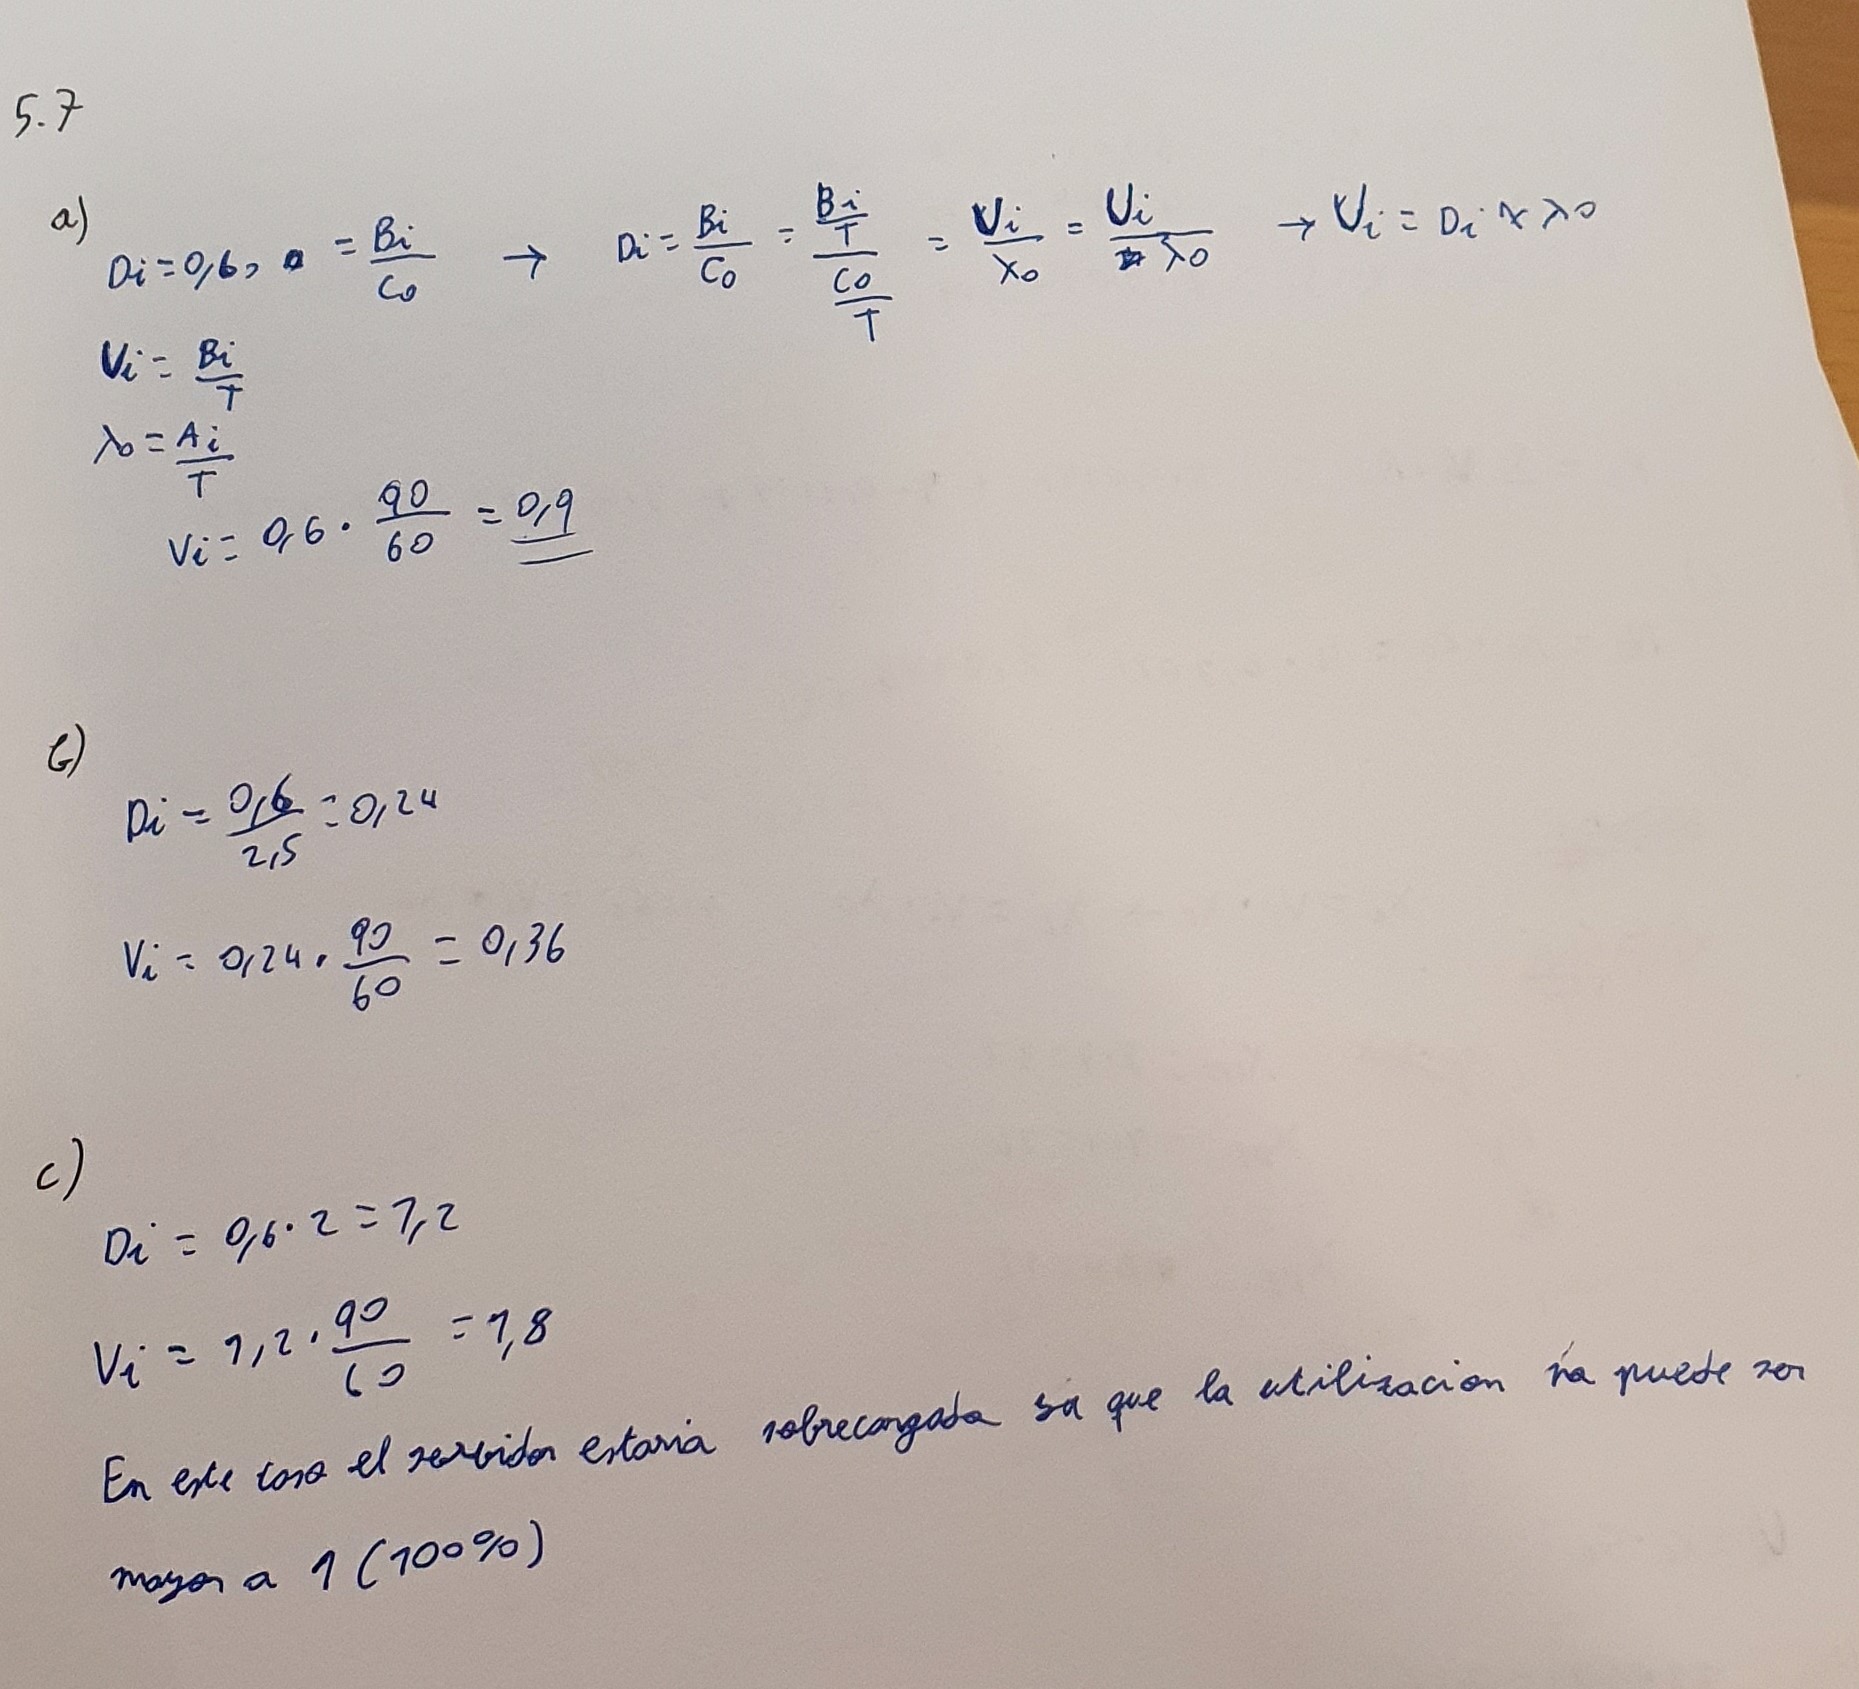 5.7
a)
Di = 0,6, = Bi/C0 → Di = Bi/C0 = (Bi/T)/(C0/T) = Ui/X0 = Ui/λ0 → Ui = Di × λ0
Vi = Bi/T
λ0 = Ai/T
Vi = 0,6 · 90/60 = 0,9
b)
Di = 0,6/2,5 = 0,24
Vi = 0,24 · 90/60 = 0,36
c)
Di = 0,6 · 2 = 1,2
Vi = 1,2 · 90/60 = 1,8
En este caso el servidor estaria sobrecargado ya que la utilizacion no puede ser
mayor a 1 (100%)